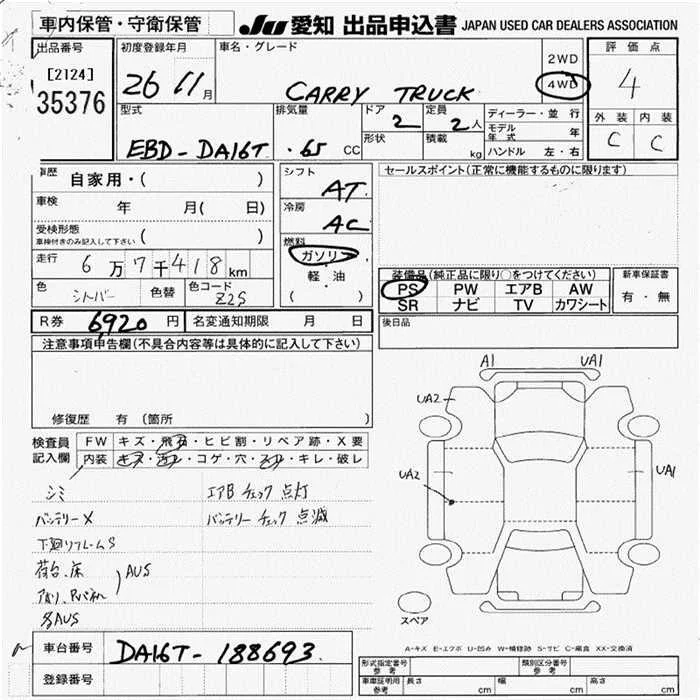 車内保管・守衛保管
JU 愛知 出品申込書 JAPAN USED CAR DEALERS ASSOCIATION
出品番号
[2124]
35376
初度登録年月
26 11月
車名・グレード
CARRY TRUCK
2WD
4WD
評価点
4
外装 内装
C C
型式
EBD-DA16T
排気量
.65 CC
ドア
2
形状
定員
2人
積載
kg
ディーラー・並行
モデル年式 年
ハンドル 左・右
車歴 自家用・( )
車検 年 月( 日)
受検形態
車検付きのみ記入して下さい ( )
走行 6万7千418km
色 シルバー 色替 色コード Z2S
シフト AT
冷房 AC
燃料
ガソリン
軽・油
( )
セールスポイント(正常に機能するものに限ります)
装備品(純正品に限り○をつけてください)
PS PW エアB AW
SR ナビ TV カワシート
新車保証書
有・無
後日品
R券 6,920円 名変通知期限 月 日
注意事項申告欄(不具合内容等は具体的に記入して下さい)
修復歴 有(箇所 )
検査員記入欄
FW キズ・飛石・ヒビ割・リペア跡・X要
内装 キズ・汚レ・コゲ・穴・スレ・キレ・破レ
シミ エアBチェック点灯
バッテリーX バッテリーチェック点滅
下廻リフレームS
荷台、床
AUS
アオリ、Rパネル
多AUS
A1 UA1
UA2
UA2
UA1
スペア
A-キズ E-エクボ U-凹み W-補修跡 S-サビ C-腐食 XX-交換済
車台番号 DA16T-188693
登録番号
形式指定番号 参考
類別区分番号 参考
車庫証明用 参考 長さ cm 幅 cm 高さ cm